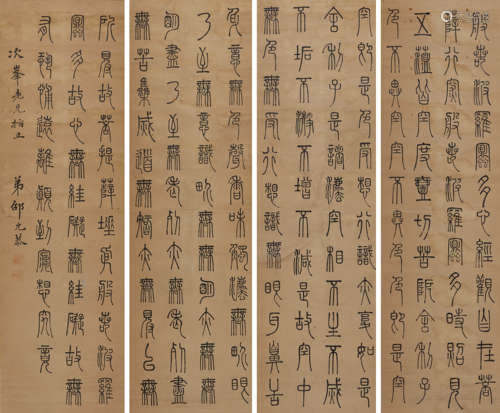 般若波羅蜜多心經觀自在菩
薩行深般若波羅蜜多時照見
五蘊皆空度壹切苦厄舍利子
色不異空空不異色色即是空
空即是色受想行識亦復如是
舍利子是諸法空相不生不滅
不垢不淨不增不減是故空中
無色無受想行識無眼耳鼻舌
身意無色聲香味觸法無眼界
乃至無意識界無無明亦無無
明盡乃至無老死亦無老死盡
無苦集滅道無智亦無得以無
所得故菩提薩埵依般若波羅
蜜多故心無罣礙無罣礙故無
有恐怖遠離顛倒夢想究竟
次峯老兄指正
弟邵元